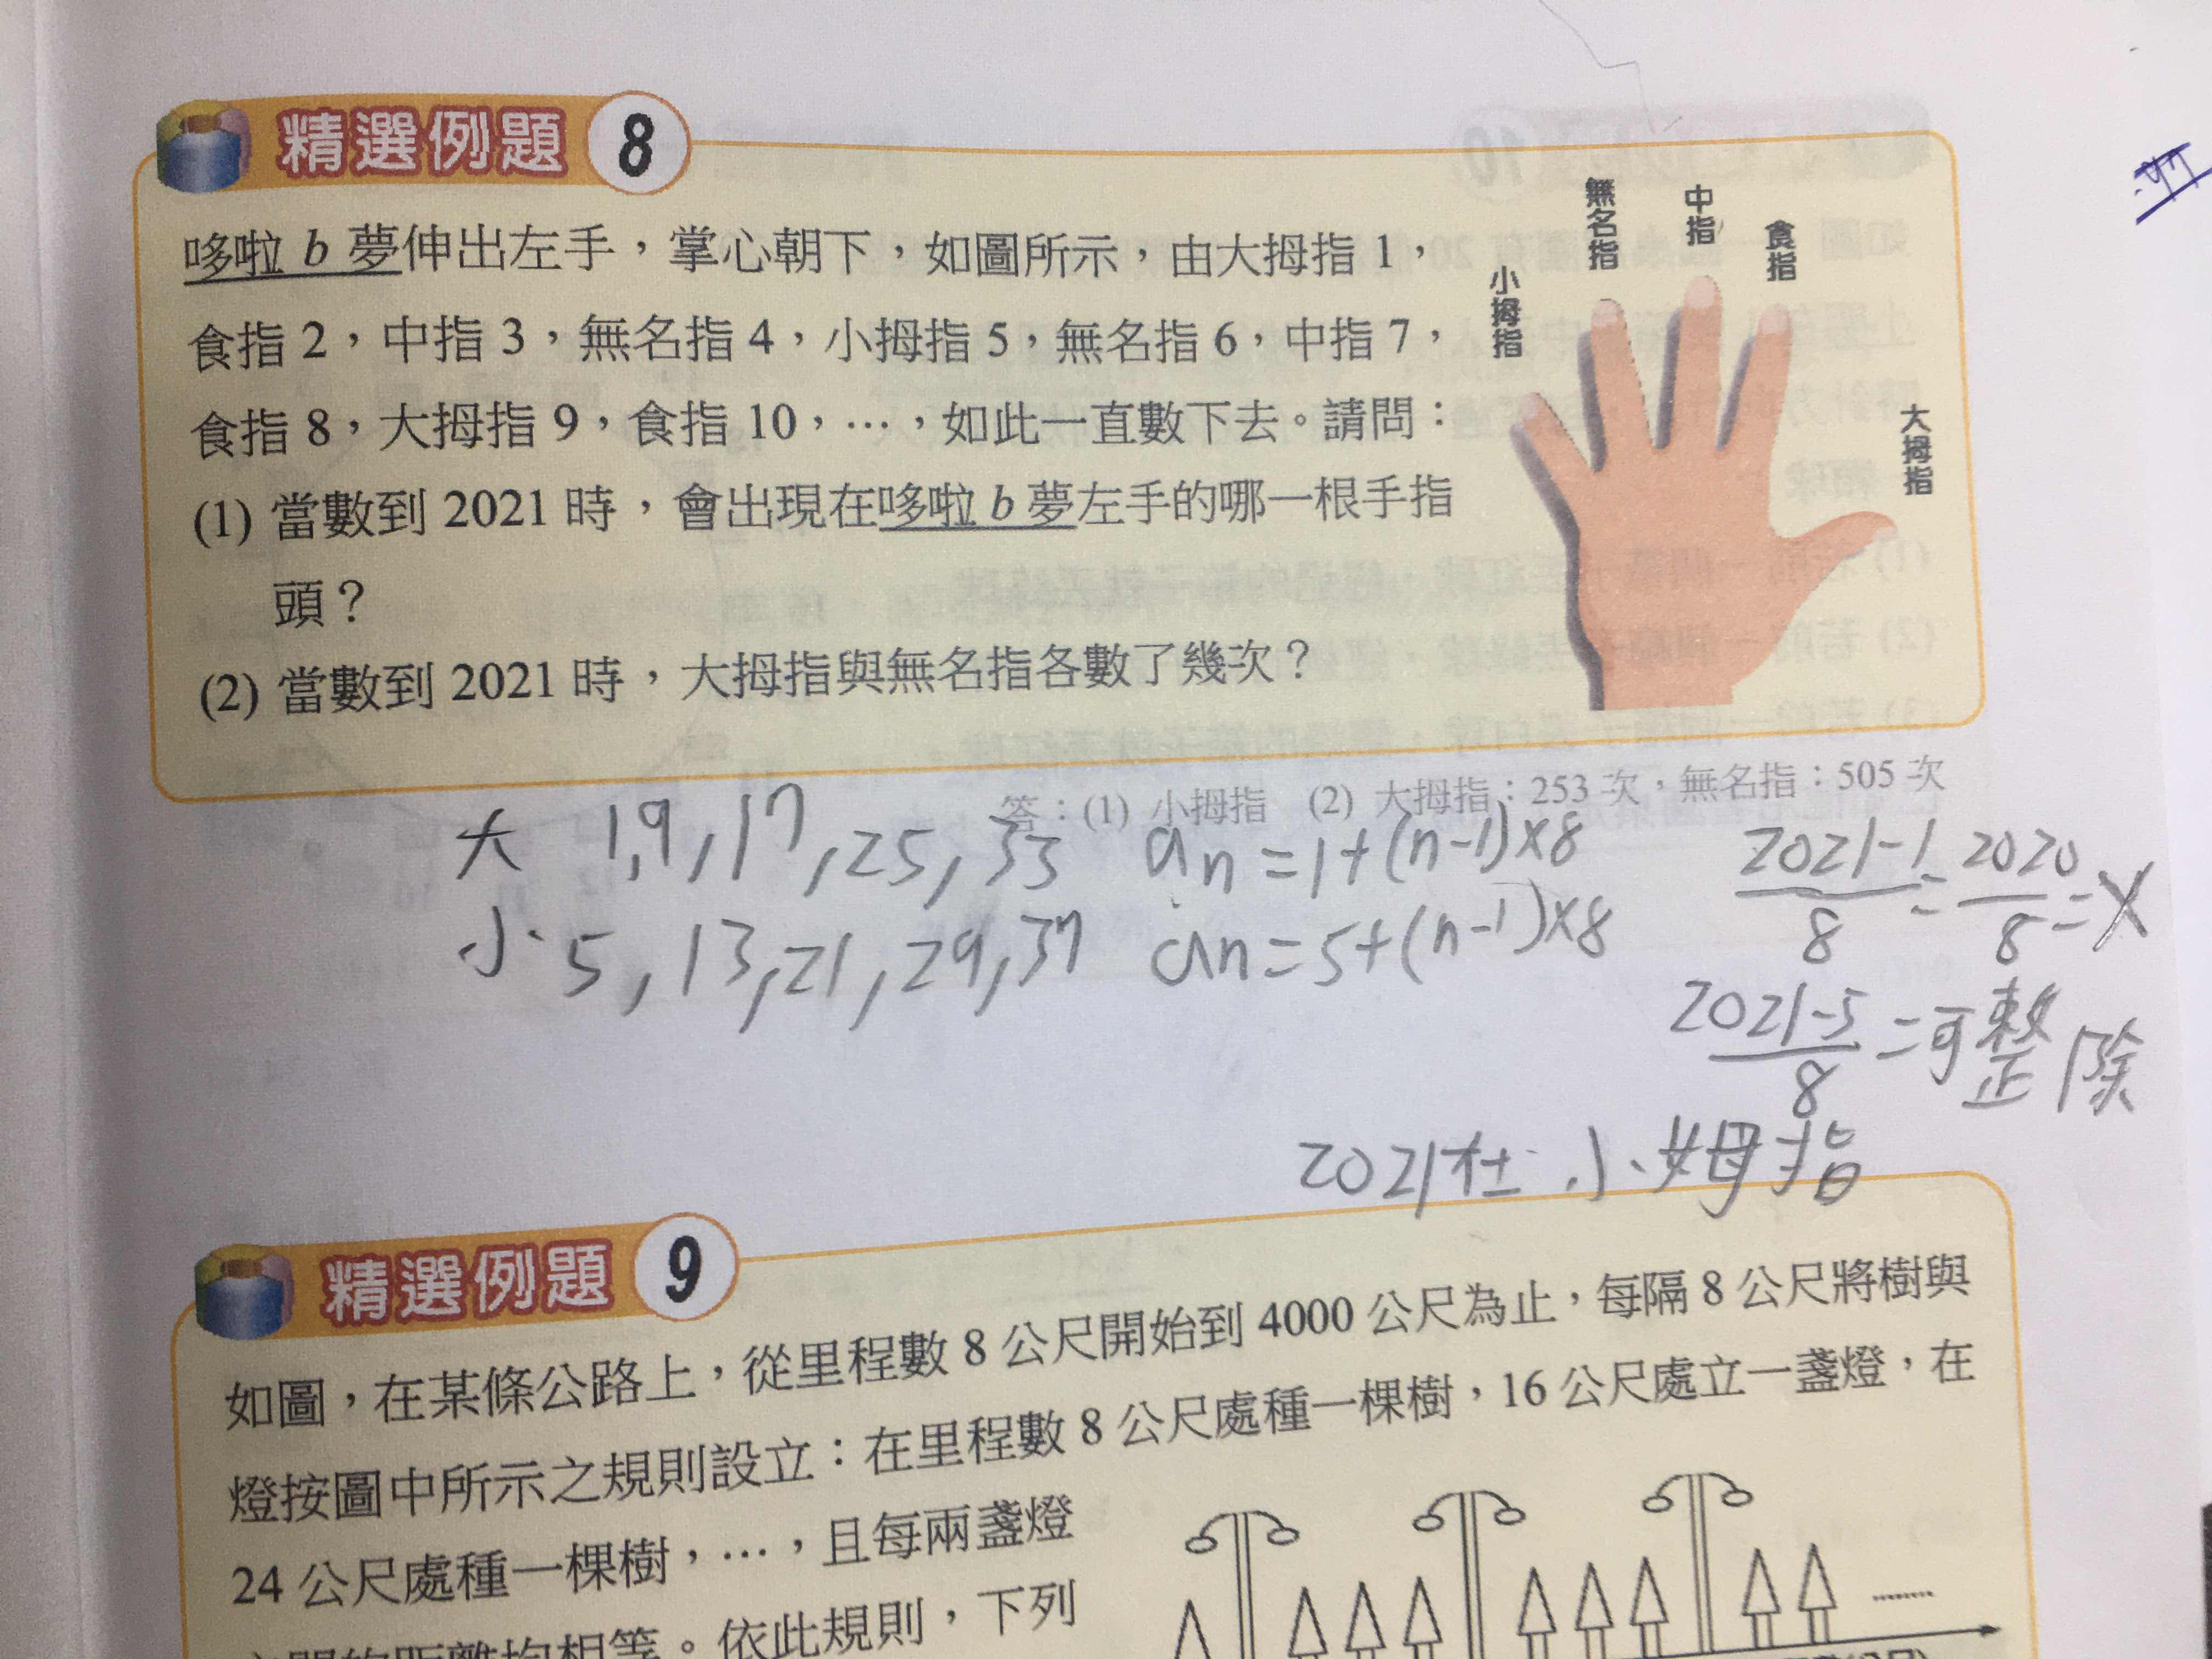 精選例題 8
哆啦 b 夢伸出左手，掌心朝下，如圖所示，由大拇指 1，
食指 2，中指 3，無名指 4，小拇指 5，無名指 6，中指 7，
食指 8，大拇指 9，食指 10，…，如此一直數下去。請問：
(1) 當數到 2021 時，會出現在哆啦 b 夢左手的哪一根手指
頭？
(2) 當數到 2021 時，大拇指與無名指各數了幾次？
小拇指
無名指
中指
食指
大拇指
答：(1) 小拇指 (2) 大拇指：253 次，無名指：505 次
大 1,9,17,25,33 an=1+(n-1)×8
小 5,13,21,29,37 an=5+(n-1)×8
2021-1/8=2020/8=X
2021-5/8=可整除
2021在小姆指
精選例題 9
如圖，在某條公路上，從里程數 8 公尺開始到 4000 公尺為止，每隔 8 公尺將樹與
燈按圖中所示之規則設立：在里程數 8 公尺處種一棵樹，16 公尺處立一盞燈，在
24 公尺處種一棵樹，…，且每兩盞燈
之間的距離均相等。依此規則，下列